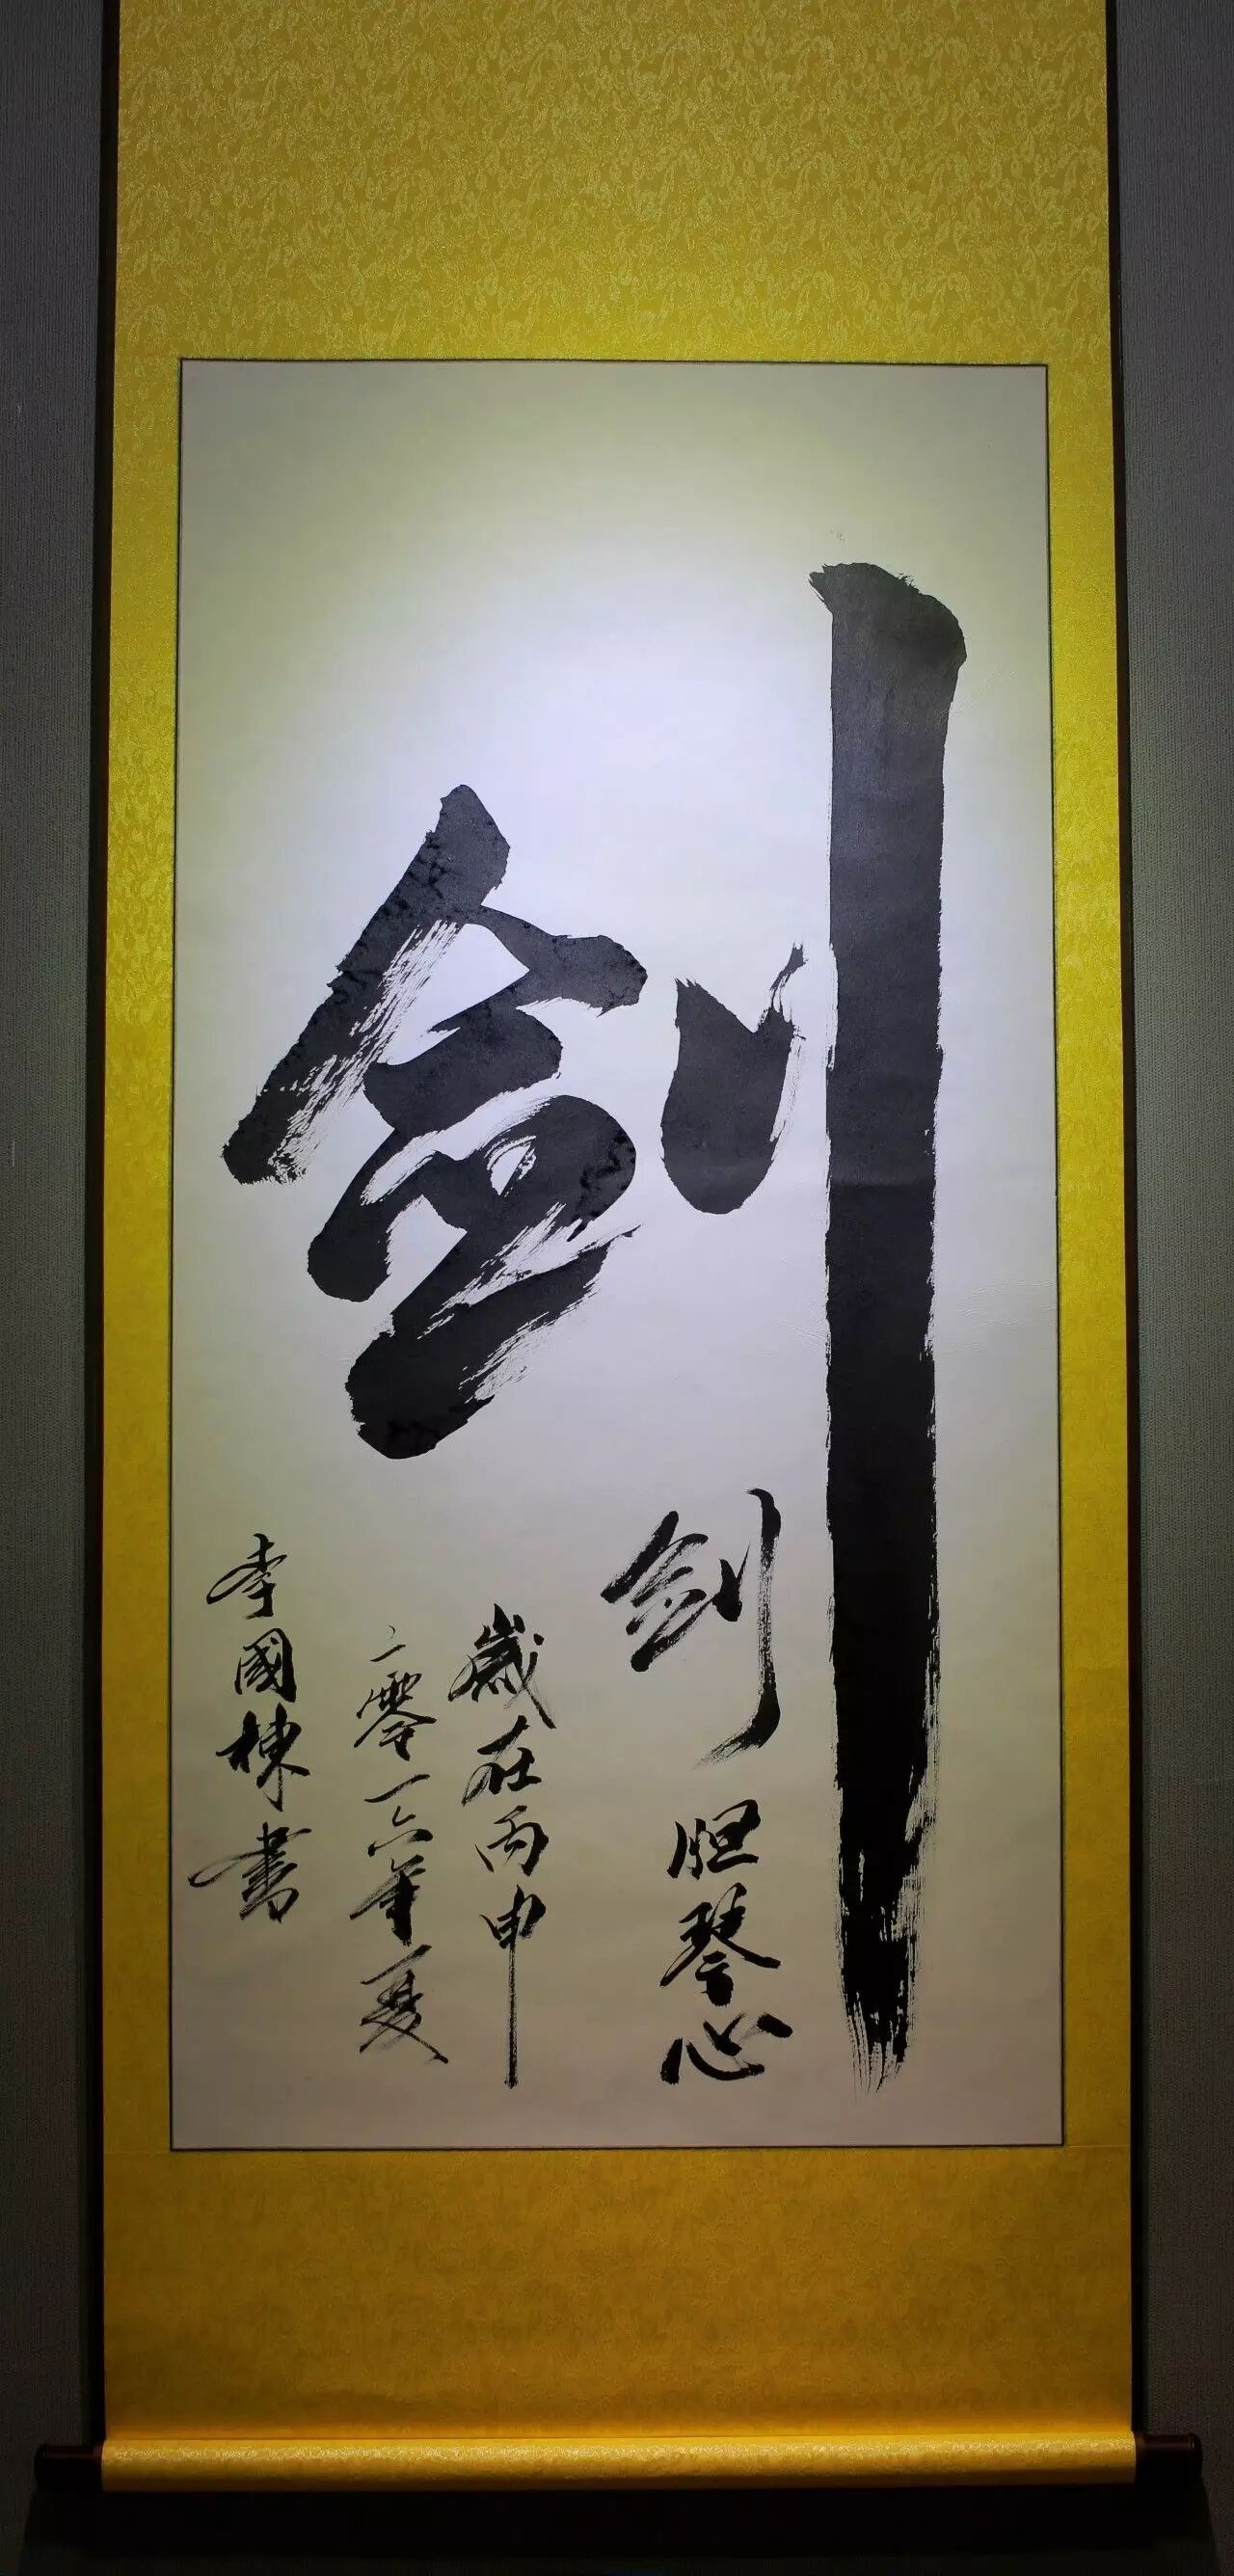 剑
剑胆琴心
歲在丙申
二零一六年夏
李國棟書